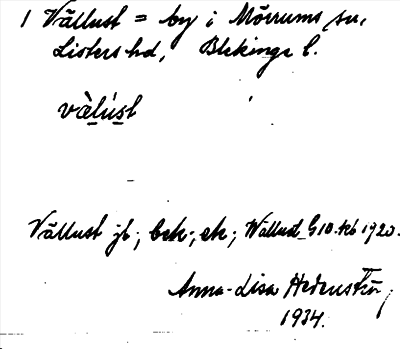 1 Vällust = by i Mörrums sn,
Listers hd, Blekinge l.
vàlúst
Vällust jb; bek; ek; Wällust G 10. kb 1920.
Anna-Lisa Hedenstn
1934.